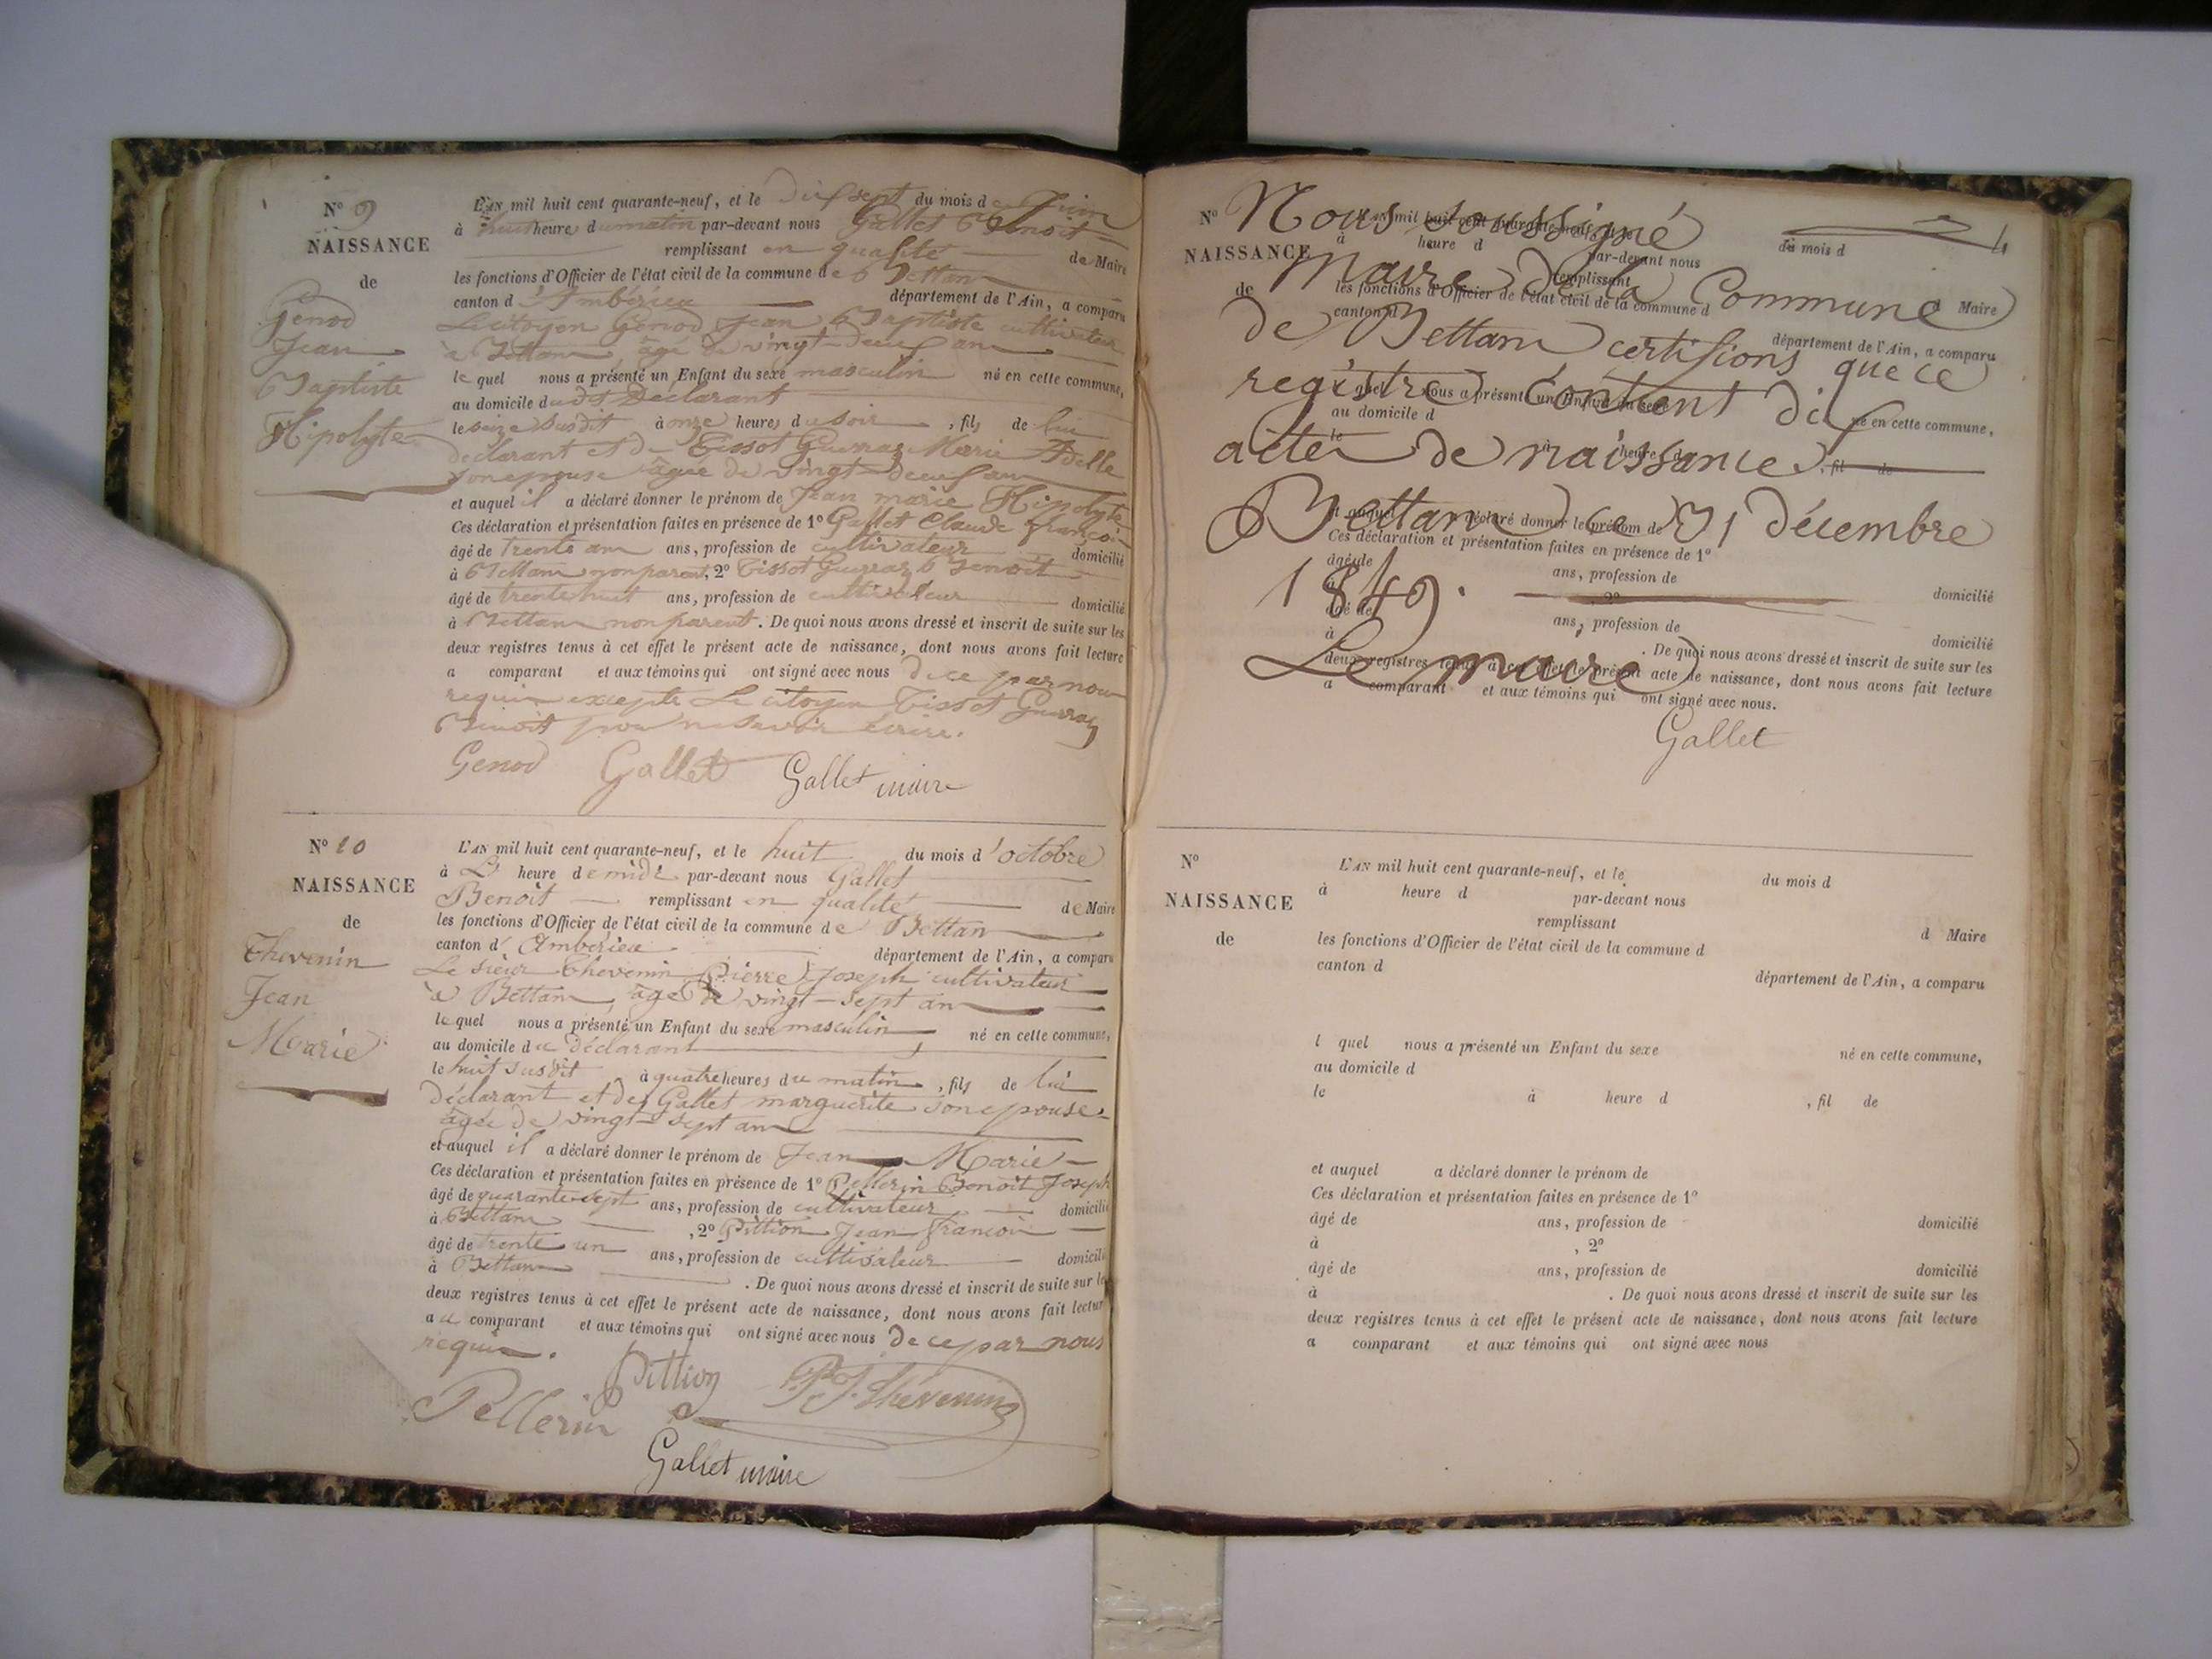 N° 9
NAISSANCE
de
Genod
Jean
Baptiste
Hipolyte
L'AN mil huit cent quarante-neuf, et le dixsept du mois de Juin
à huit heures du matin par-devant nous Gallet Benoit
remplissant en qualité de Maire
les fonctions d'Officier de l'état civil de la commune de Bettan
canton d'Ambérieu département de l'Ain, a comparu
Le citoyen Genod Jean Baptiste cultivateur
à Bettan âgé de vingt-deux ans
lequel nous a présenté un Enfant du sexe masculin né en cette commune,
au domicile dudit déclarant
le seize susdit à onze heures du soir, fils de lui
déclarant et de Tissot Guerraz Marie Adelle
son epouse âgée de vingt-deux ans
et auquel il a déclaré donner le prénom de Jean marie Hipolyte
Ces déclaration et présentation faites en présence de 1° Gallet Claude françois
âgé de trente ans ans, profession de cultivateur domicilié
à Bettan non parent, 2° Tissot Guerraz Benoit
âgé de trente huit ans, profession de cultivateur domicilié
à Bettan non parent. De quoi nous avons dressé et inscrit de suite sur les
deux registres tenus à cet effet le présent acte de naissance, dont nous avons fait lecture
a comparant et aux témoins qui ont signé avec nous de ce par nous
requis excepté Le citoyen Tissot Guerraz
Benoit pour ne savoir écrire.
Genod Gallet Gallet maire
N° 10
NAISSANCE
de
Thevenin
Jean
Marie
L'AN mil huit cent quarante-neuf, et le huit du mois d'octobre
à L' heure de midi par-devant nous Gallet
Benoit remplissant en qualité de Maire
les fonctions d'Officier de l'état civil de la commune de Bettan
canton d'Ambérieu département de l'Ain, a comparu
Le sieur Thevenin Pierre Joseph cultivateur
à Bettan âgé de vingt-sept ans
lequel nous a présenté un Enfant du sexe masculin né en cette commune,
au domicile du déclarant
le huit susdit à quatre heures du matin, fils de lui
déclarant et de Gallet marguerite son epouse
âgée de vingt-sept ans
et auquel il a déclaré donner le prénom de Jean Marie
Ces déclaration et présentation faites en présence de 1° Pellerin Benoit Joseph
âgé de quarante-sept ans, profession de cultivateur domicilié
à Bettan, 2° Pittion Jean francois
âgé de trente un ans, profession de cultivateur domicilié
à Bettan. De quoi nous avons dressé et inscrit de suite sur les
deux registres tenus à cet effet le présent acte de naissance, dont nous avons fait lecture
au comparant et aux témoins qui ont signé avec nous de ce par nous
requis.
Pellerin Pittion P. J. Thevenin
Gallet maire
4
Nous soussigné
Maire de la Commune
de Bettan certifions que ce
registre contient dix
actes de naissance.
Bettan ce 31 décembre
1849.
Le maire
Gallet
N°
NAISSANCE
de
L'AN mil huit cent quarante-neuf, et le du mois d
à heure d par-devant nous
remplissant d Maire
les fonctions d'Officier de l'état civil de la commune d
canton d département de l'Ain, a comparu
l quel nous a présenté un Enfant du sexe né en cette commune,
au domicile d
le à heure d , fil de
et auquel a déclaré donner le prénom de
Ces déclaration et présentation faites en présence de 1°
âgé de ans, profession de domicilié
à , 2°
âgé de ans, profession de domicilié
à . De quoi nous avons dressé et inscrit de suite sur les
deux registres tenus à cet effet le présent acte de naissance, dont nous avons fait lecture
a comparant et aux témoins qui ont signé avec nous.
N°
NAISSANCE
de
L'AN mil huit cent quarante-neuf, et le du mois d
à heure d par-devant nous
remplissant d Maire
les fonctions d'Officier de l'état civil de la commune d
canton d département de l'Ain, a comparu
l quel nous a présenté un Enfant du sexe né en cette commune,
au domicile d
le à heure d , fil de
et auquel a déclaré donner le prénom de
Ces déclaration et présentation faites en présence de 1°
âgé de ans, profession de domicilié
à , 2°
âgé de ans, profession de domicilié
à . De quoi nous avons dressé et inscrit de suite sur les
deux registres tenus à cet effet le présent acte de naissance, dont nous avons fait lecture
a comparant et aux témoins qui ont signé avec nous